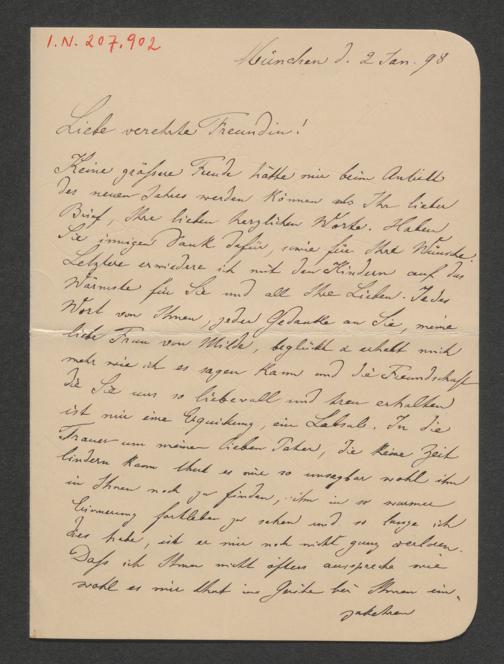 I.N. 207.902
München d. 2 Jan. 98
Liebe verehrte Freundin!
Keine größere Freude hätte mir beim Antritt
des neuen Jahres werden können als Ihr lieber
Brief, Ihre lieben herzlichen Worte. Haben
Sie innigen Dank dafür, sowie für Ihre Wünsche.
Letztere erwiedere ich mit den Kindern auf das
Wärmste für Sie und all Ihre Lieben. Jedes
Wort von Ihnen, jeder Gedanke an Sie, meine
liebe Frau von Milde, beglückt & erhebt mich
mehr wie ich es sagen kann und die Freundschaft
die Sie uns so liebevoll und treu erhalten
ist mir eine Erquickung, ein Labsale. In die
Trauer um meinen lieben Vater, die keine Zeit
lindern kann thut es mir so unsagbar wohl ihn
in Ihnen noch zu finden, ihn in so warmer
Erinnerung fortleben zu sehen und so lange ich
dies habe, ist er mir noch nicht ganz verloren.
Daß ich Ihnen nicht öfters ausspreche wie
wohl es mir thut im Geiste bei Ihnen ein-
zukehren